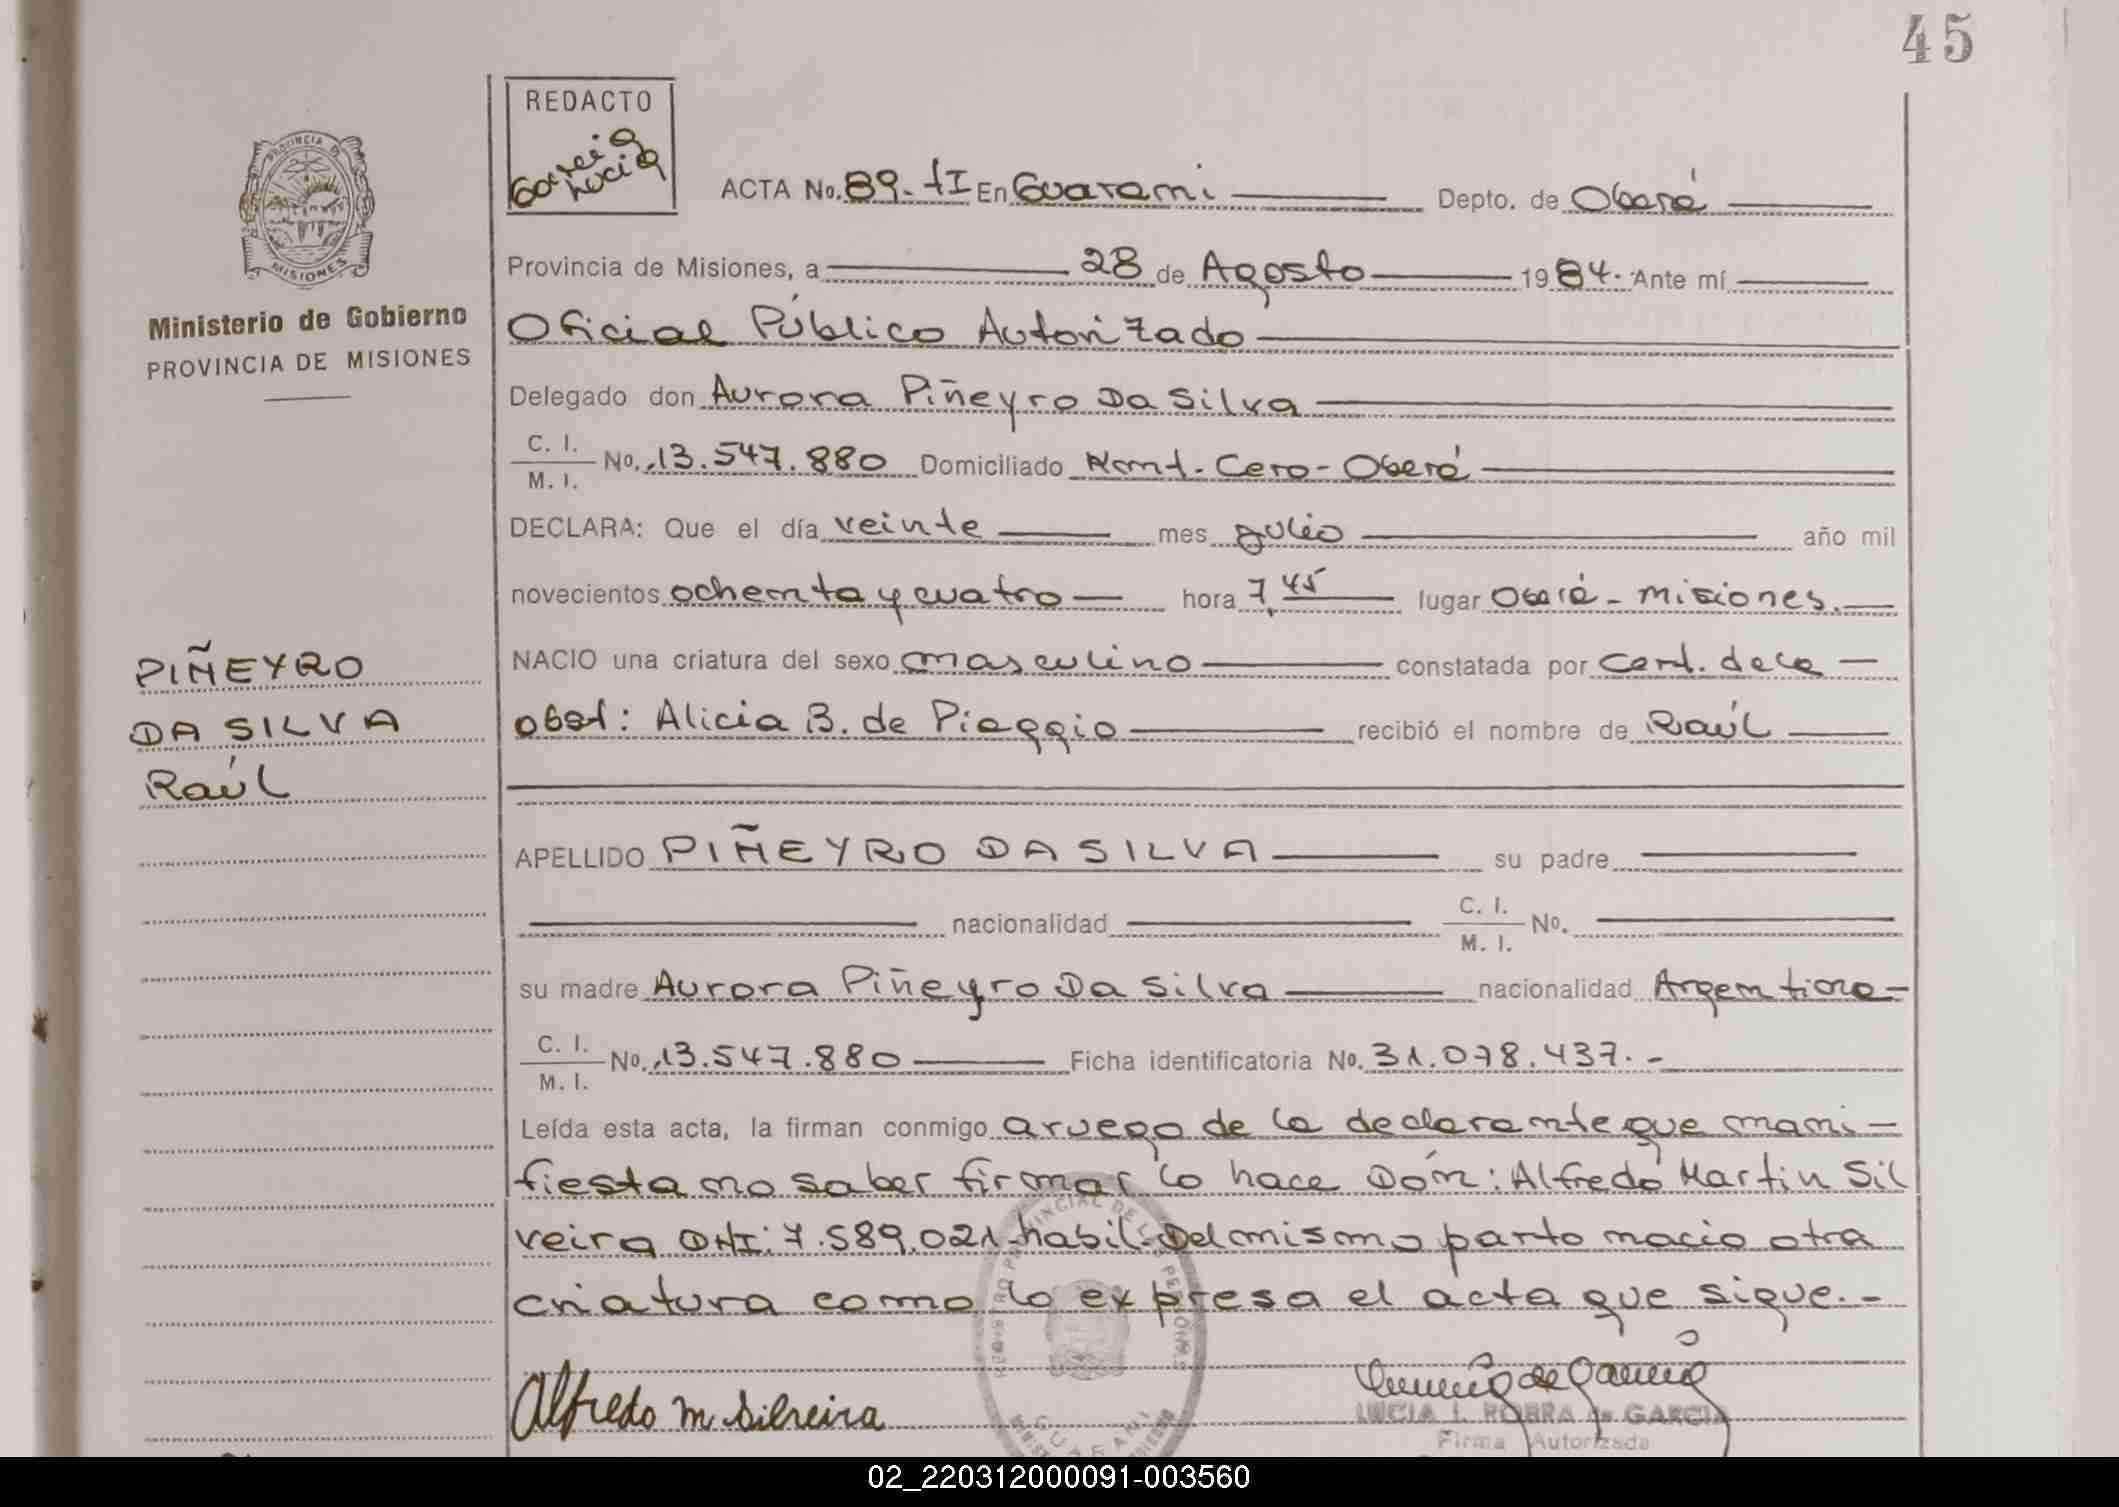 45
REDACTO
Garcia
Lucia
PROVINCIA DE
MISIONES
Ministerio de Gobierno
PROVINCIA DE MISIONES
ACTA No. 89-tI En Guarani Depto. de Oberá
Provincia de Misiones, a 28 de Agosto 1984. Ante mí
Oficial Público Autorizado
Delegado don Aurora Piñeyro Da Silva
C. I.
M. I. No. 13.547.880 Domiciliado Kmt. Cero - Oberá
DECLARA: Que el día veinte mes Julio año mil
novecientos ochenta y cuatro hora 7,45 lugar Oberá - Misiones.
NACIO una criatura del sexo masculino constatada por Cert. de la
obst: Alicia B. de Piaggio recibió el nombre de Raúl
PIÑEYRO
DA SILVA
Raúl
APELLIDO PIÑEYRO DA SILVA su padre
nacionalidad C. I.
M. I. No.
su madre Aurora Piñeyro Da Silva nacionalidad Argentina-
C. I.
M. I. No. 13.547.880 Ficha identificatoria No. 31.078.437.-
Leída esta acta, la firman conmigo a ruego de la declarante que mani-
fiesta no saber firmar lo hace Dón: Alfredo Martin Sil
veira DNI: 7.589.021 habil. Del mismo parto nacio otra
criatura como lo expresa el acta que sigue.-
Alfredo M. Silveira
LUCIA I. de GARCIA
Firma Autorizada
REGISTRO PROVINCIAL DE LAS PERSONAS
GUARANI
02_220312000091-003560